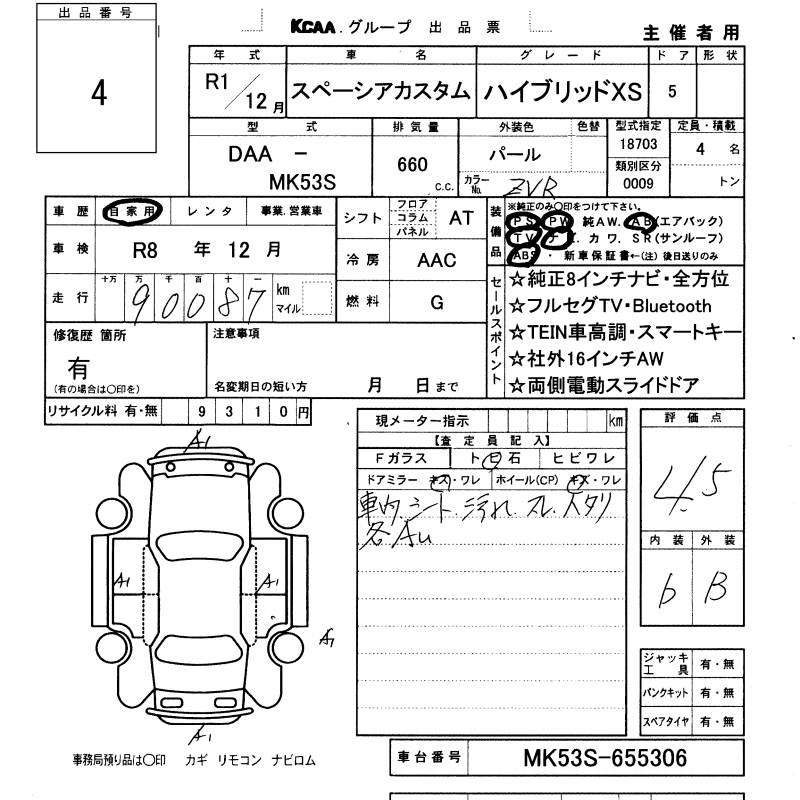 出品番号
4
KCAA.グループ 出品票
主催者用
年式 車名 グレード ドア 形状
R1/12月 スペーシアカスタム ハイブリッドXS 5
型式 排気量 外装色 色替 型式指定 定員・積載
DAA - MK53S 660 c.c. パール 18703 4名
カラーNo. ZVR 類別区分 0009 トン
車歴 自家用 レンタ 事業.営業車
シフト フロア コラム パネル AT
装備品 ※純正のみ〇印をつけて下さい。
PS PW 純AW. AB(エアバック)
TV ナビ. カワ. SR(サンルーフ)
ABS・ 新車保証書←(注)後日送りのみ
車検 R8 年 12 月
冷房 AAC
走行 十万 万 千 百 十 一
90087 km マイル
燃料 G
セールスポイント
☆純正8インチナビ・全方位
☆フルセグTV・Bluetooth
☆TEIN車高調・スマートキー
☆社外16インチAW
☆両側電動スライドドア
修復歴 箇所
有
(有の場合は〇印を)
注意事項
名変期日の短い方 月 日まで
リサイクル料 有・無 9310円
現メーター指示 km
【査定員記入】
Fガラス ト日石 ヒビワレ
ドアミラー キズ・ワレ ホイール(CP) キズ・ワレ
車内.シート.汚れ.スレ.
各AU
評価点
4.5
内装 外装
b B
A1
A1
A1
A1
ジャッキ工具 有・無
パンクキット 有・無
スペアタイヤ 有・無
事務局預り品は〇印 カギ リモコン ナビロム
車台番号 MK53S-655306